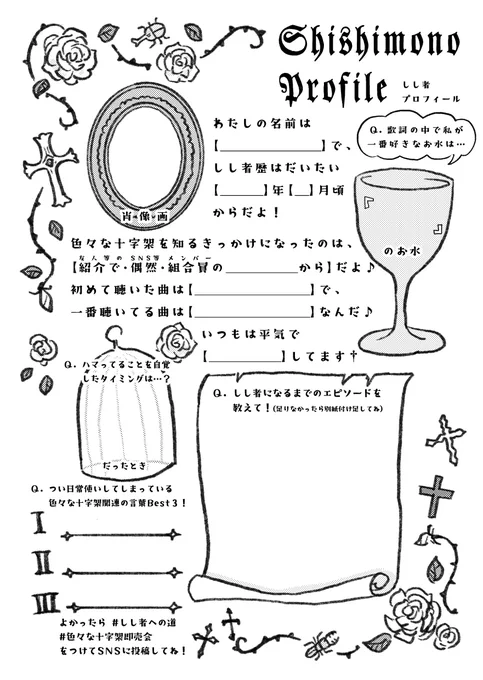 Shishimono
Profile
しし者
プロフィール
肖像画
わたしの名前は
【　　　　　　】で、
しし者歴はだいたい
【　　　】年【　】月頃
からだよ！
Q. 歌詞の中で私が
一番好きなお水は…
『　　　』
のお水
色々な十字架を知るきっかけになったのは、
友人等の SNS等 メンバー
【紹介で・偶然・組合員の　　　　　から】だよ♪
初めて聴いた曲は【　　　　　　　】で、
一番聴いてる曲は【　　　　　　　】なんだ♪
いつもは平気で
【　　　　　】してます†
Q. ハマってることを自覚
したタイミングは…？
だったとき
Q. しし者になるまでのエピソードを
教えて！(足りなかったら別紙付け足してね)
Q. つい日常使いしてしまっている
色々な十字架関連の言葉Best3！
I
II
III
よかったら #しし者への道
#色々な十字架即売会
をつけてSNSに投稿してね！